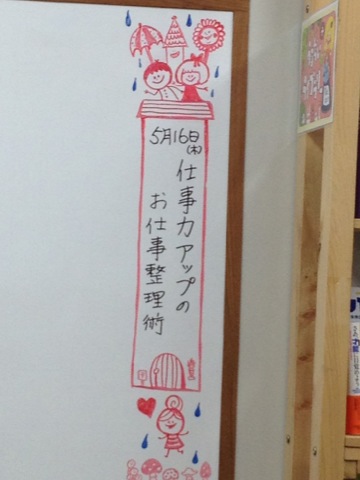 5月16日(木)
仕事力アップの
お仕事整理術